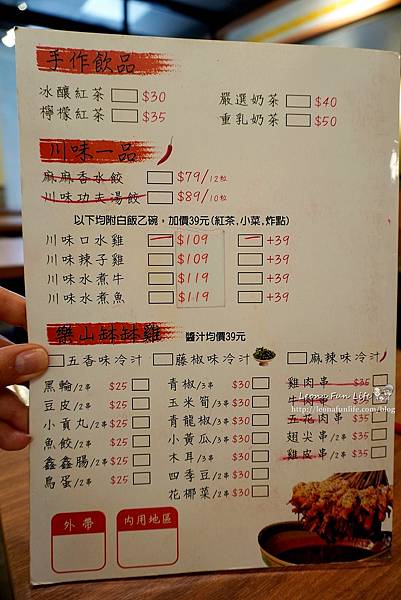 手作飲品
冰釀紅茶 $30
檸檬紅茶 $35
嚴選奶茶 $40
重乳奶茶 $50
川味一品
麻麻香水餃 $79/12粒
川味功夫湯餃 $89/10粒
以下均附白飯乙碗，加價39元(紅茶,小菜,炸點)
川味口水雞 $109 +39
川味辣子雞 $109 +39
川味水煮牛 $119 +39
川味水煮魚 $119 +39
樂山缽缽雞 醬汁均價39元
五香味冷汁 藤椒味冷汁 麻辣味冷汁
黑輪/2串 $25
豆皮/2串 $25
小貢丸/2串 $25
魚餃/2串 $25
鑫鑫腸/2串 $25
鳥蛋/2串 $25
青椒/3串 $30
玉米筍/3串 $30
青龍椒/3串 $30
小黃瓜/3串 $30
木耳/3串 $30
四季豆/2串 $30
花椰菜/2串 $30
雞肉串 $35
牛肉串
五花肉串 $35
翅尖串/2串 $35
雞皮串/2串 $35
外帶
內用地區
Leona Fun Life
http://leonafunlife.com/blog